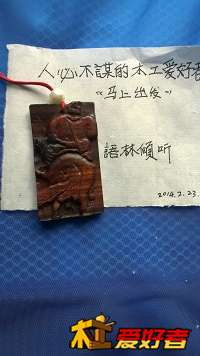 人心不謀的木工爱好者
“马上出发”
語林傾听
2014.2.23.
木工爱好者